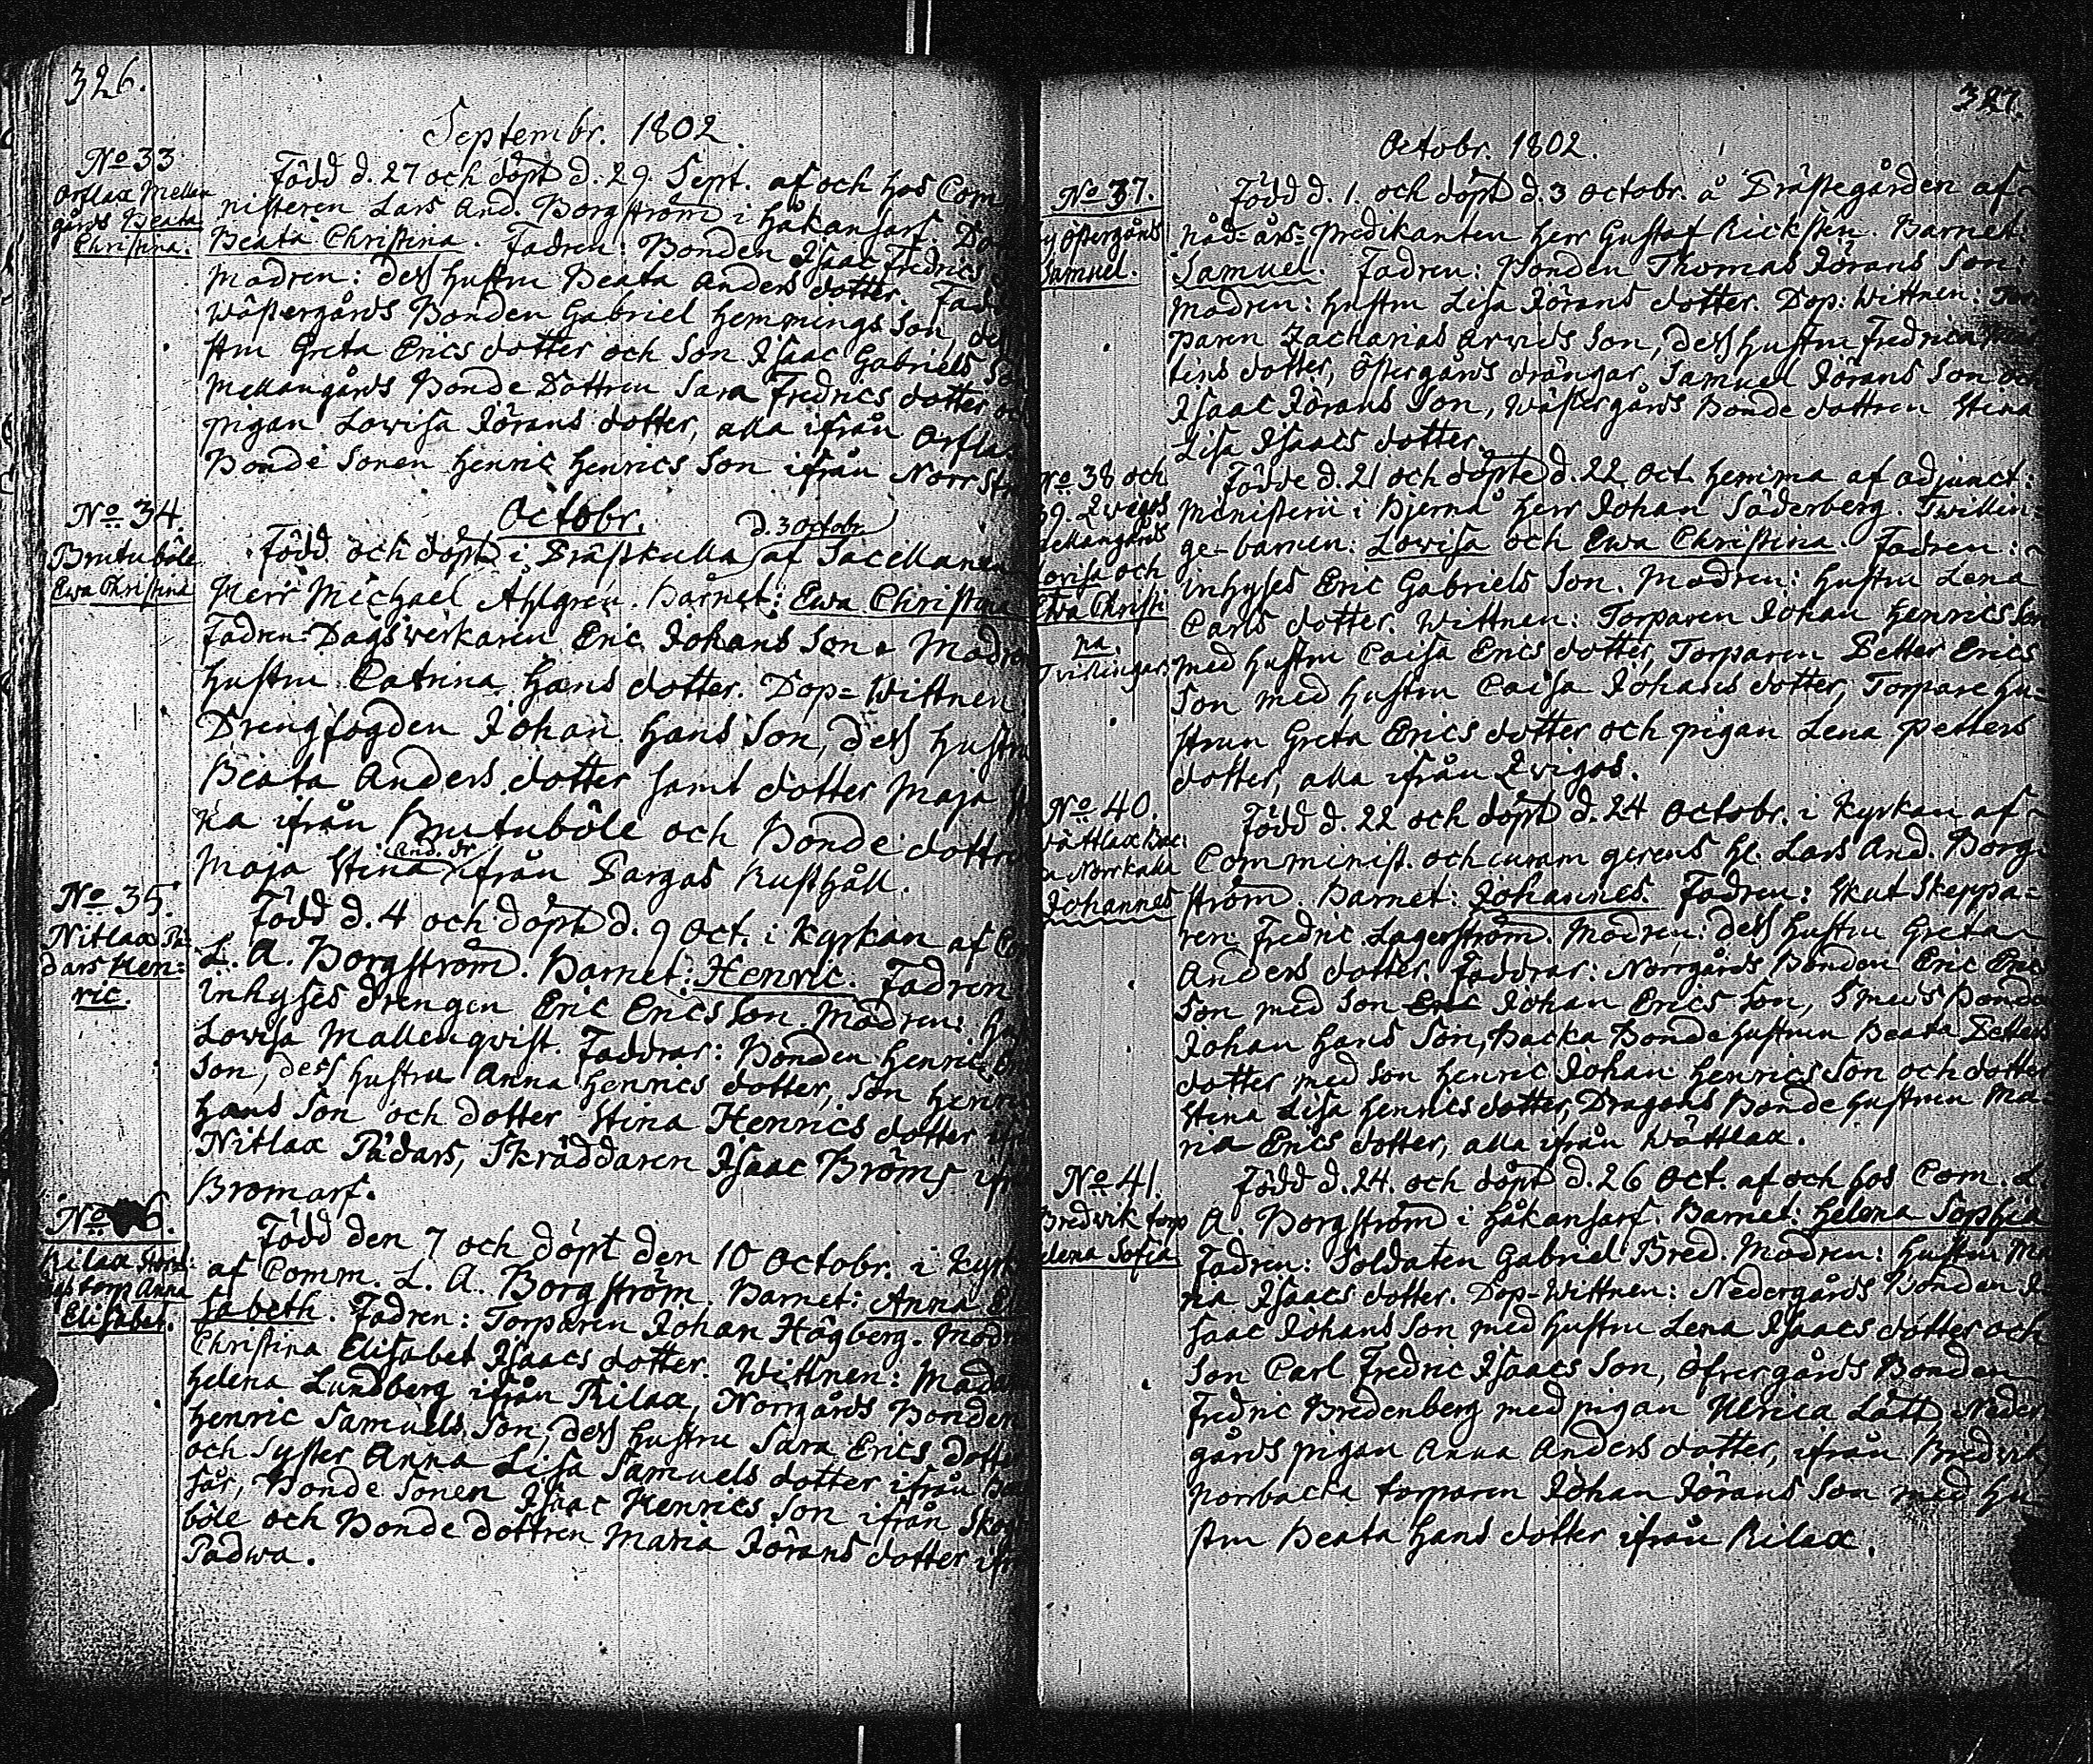 326.
Septembr. 1802.
No 33
Orflax Mellan
gårds Beata
Christina.
Född d. 27 och döpt d. 29. Sept. af och hos Com
nisteren Lars And. Borgström i Håkansarf
Beata Christina. Fadren: Bonden Isaac Fredrics
Modren: dess hustru Beata Anders dotter.
Wästergårds Bonden Gabriel Hemmings Son,
stru Greta Erics dotter och Son Isaac Gabriels
Mellangårds Bonde Dottren Sara Fredrics dotter
pigan Lowisa Jörans dotter, alla ifrån Orfla
Bonde Sonen Henric Henrics Son ifrån Norr
Octobr.
No 34.
Brutuböle
Ewa Christina
d. 3 octobr.
Född och döpt i Prästkulla af Sacellanen
Herr Michael Ahlgren. Barnet: Ewa Christina
Fadren: Dagsverkaren Eric Johans Son. Modren
hustru Catrina Hans dotter. Dop-Wittnen
Drengfogden Johan Hans Son, dess hustru
Beata Anders dotter samt dotter Maja
na ifrån Brutuböle och Bonde dottren
And. dr
Maja Stina ifrån Pargas Rusthåll.
No 35.
Nitlax
dars Hen=
ric.
Född d. 4 och döpt d. 9 Oct. i Kyrkan af
L. A. Borgström. Barnet: Henric. Fadren
Inhyses drengen Eric Erics Son. Modren:
Lowisa Mallenqvist. Faddrar: Bonden Henric
Son, dess hustru Anna Henrics dotter, Son Henric
Hans Son och dotter Stina Henrics dotter
Nitlax Pädars, Skräddaren Isaac Bröms
Bromarf.
No 6.
Rilax
torp Anna
Elisabet.
Född den 7 och döpt den 10 Octobr. i Kyrk
af Comm. L. A. Borgström. Barnet: Anna
sabeth. Fadren: Torparen Johan Högberg.
Christina Elisabet Isaacs dotter. Wittnen: Madam
Helena Lundberg ifrån Rilax, Norrgårds Bonden
Henric Samuels Son, dess hustru Sara Erics dotter
och Syster Anna Lisa Samuels dotter ifrån
sår, Bonde Sonen Isaac Henrics Son ifrån
böle och Bonde dottren Maria Jörans dotter
Padwa.
327.
Octobr. 1802.
No 37.
Östergårds
Samuel.
Född d. 1. och döpt d. 3 octobr. å Prästegården af
nåd-års-predikanten Herr Gustaf Ricksten. Barnet:
Samuel. Fadren: Bonden Thomas Jörans Son:
Modren: hustru Lisa Jörans dotter. Dop: Wittnen:
paren Zacharias Arvids Son, dess hustru Fredrica
tins dotter, Östergårds drängar Samuel Jörans Son och
Isaac Jörans Son, Wästergårds Bonde dottren Stina
Lisa Isaacs dotter.
No 38 och
39. Qwigos
Mellangårds
Lovisa och
Ewa Christi
na.
Tvillingar.
Födde d. 21 och döpte d. 22 oct. hemma af adjunct:
Ministerii i Bjernå Herr Johan Söderberg. Twillin=
ge-barnen: Lowisa och Ewa Christina. Fadren:
inhyses Eric Gabriels Son. Modren: hustru Lena
Carls dotter. Wittnen: Torparen Johan Henrics Son
med hustru Caisa Erics dotter, Torparen Petter Erics
Son med hustru Caisa Johans dotter, Torpare hu=
strun Greta Erics dotter och pigan Lena Petters
dotter, alla ifrån Qwigos.
No 40.
Wättlax Bac:
Norrkulla
Johannes
Född d. 22 och döpt d. 24 Octobr. i Kyrkan af
Comminist. och curam gerens H. Lars And. Borg=
ström. Barnet: Johannes. Fadren: Skut Skeppa=
ren Fredric Lagerström. Modren: dess hustru Greta
Anders dotter. Faddrar: Norrgårds Bonden Eric Erics
Son med Son Eric Johan Erics Son, Smeds Bonden
Johan Hans Son, Backa Bonde hustrun Beata Petters
dotter med Son Henric Johan Henrics Son och dotter
Stina Lisa Henrics dotter, Dragons Bonde hustrun Ma=
ria Erics dotter, alla ifrån Wättlax.
No 41.
Bredwik torp
Helena Sofia
Född d. 24. och döpt d. 26 Oct. af och hos Com. L.
A. Borgström i Håkansarf. Barnet: Helena Sophia
Fadren: Soldaten Gabriel Bred. Modren: hustru Ma
ria Isaacs dotter. Dop-Wittnen: Nedergårds Bonden I=
saac Johans Son med hustru Lena Isaacs dotter och
Son Carl Fredric Isaacs Son, Öfvergårds Bonden
Fredric Bredenberg med pigan Ulrica Lätt, Neder
gårds pigan Anna Anders dotter, ifrån Bredvik
Porrbacka torparen Johan Jörans Son med hu=
stru Beata Hans dotter ifrån Rilax.